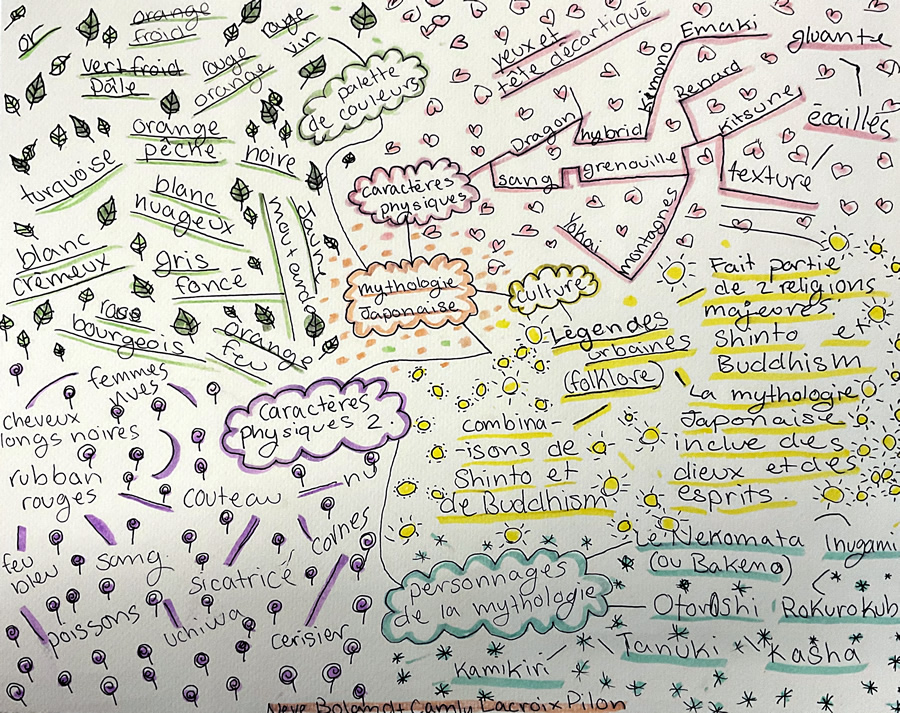 or
orange
froid
rouge
vin
vert froid
pâle
rouge
orange
palette
de couleurs
orange
pêche
noire
turquoise
blanc
nuageux
moutarde
Jaune
blanc
crèmeux
gris
foncé
rose
bourgeois
orange
feu
yeux et
tête décortiqué
Emaki
gluante
Kimono
Renard
Kitsune
écaillés
Dragon
hybrid
sang
grenouille
texture
caractères
physiques
Yokai
montagnes
mythologie
Japonaise
culture
Légendes
urbaines
(folklore)
Fait partie
de 2 religions
majeures:
Shinto et
Buddhism
La mythologie
Japonaise
inclue des
dieux et des
esprits.
combina-
-isons de
Shinto et
de Buddhism
femmes
nues
cheveux
longs noires
Caractères
physiques 2
rubban
rouges
couteau
nu
feu
bleu
sang
sicatricé
cornes
poissons
uchiwa
cerisier
personnages
de la mythologie
Le Nekomata
(ou Bakemo)
Inugami
Otoroshi
Rokurokub
Tanuki
Kasha
Kamikiri
Lacroix Pilon